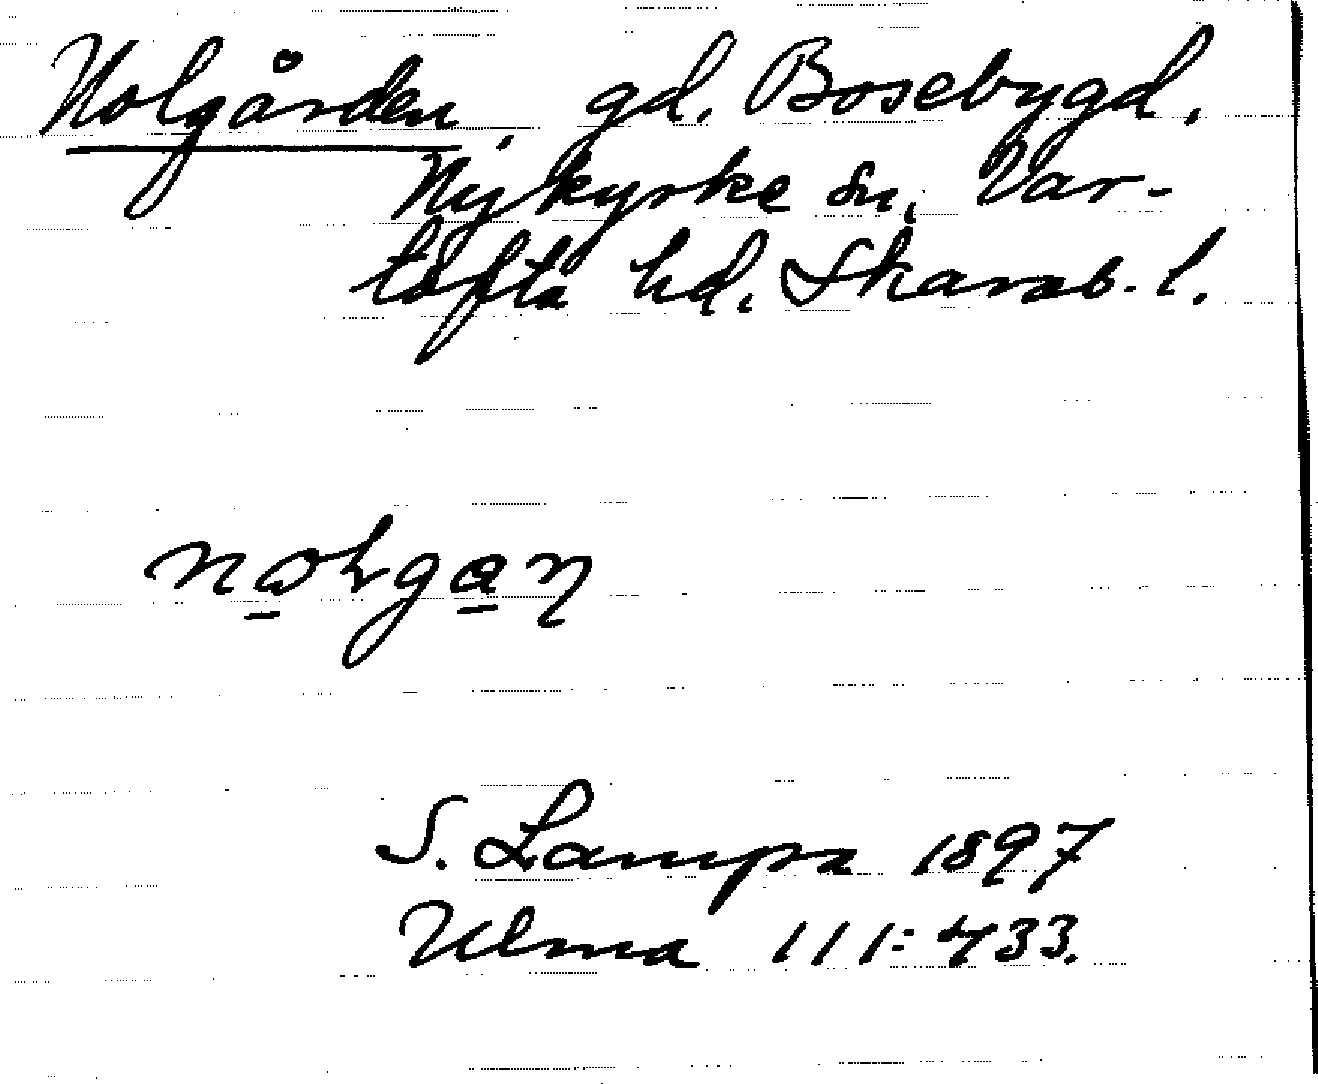 Nolgården, gd. Bosebygd,
Nykyrke sn, Var-
tofta hd. Skarab. l.
S. Lampa 1897
Ulma 111:433.